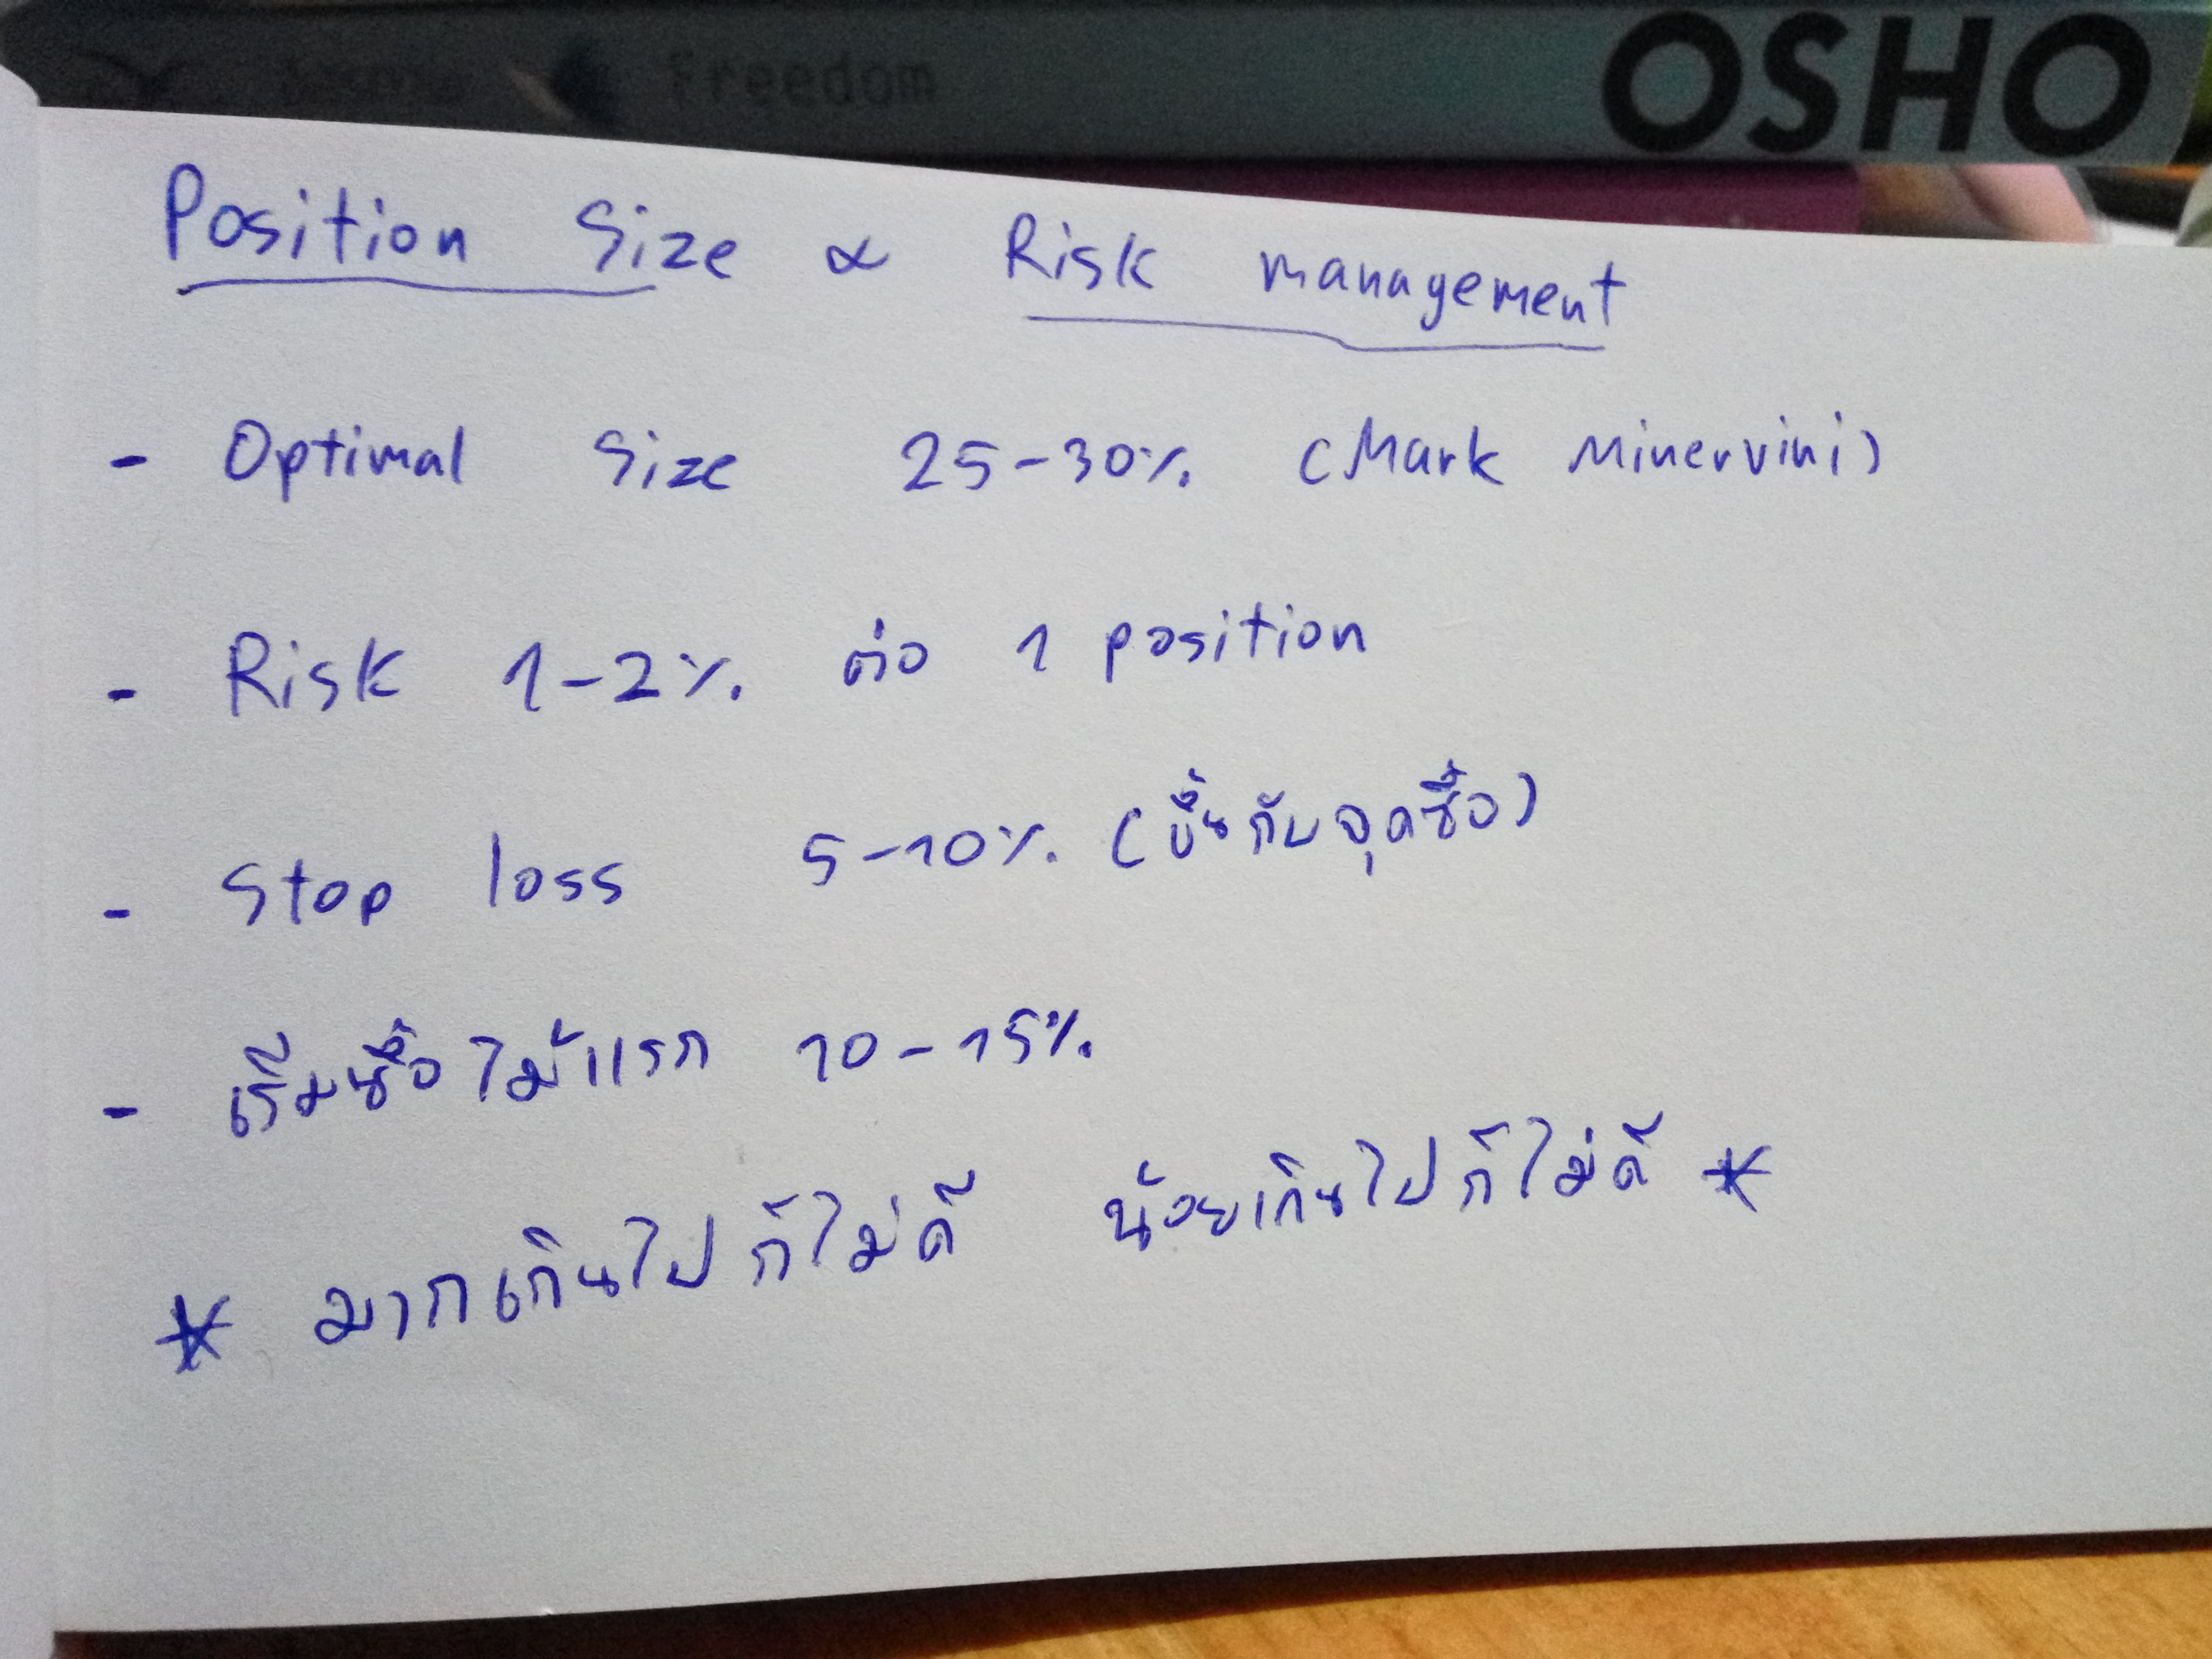 Freedom OSHO
Position Size & Risk management
- Optimal Size 25-30% (Mark Minervini)
- Risk 1-2% ต่อ 1 position
- Stop loss 5-10% (ขึ้นกับจุดซื้อ)
- เริ่มซื้อไม้แรก 10-15%
* มากเกินไปก็ไม่ดี น้อยเกินไปก็ไม่ดี *